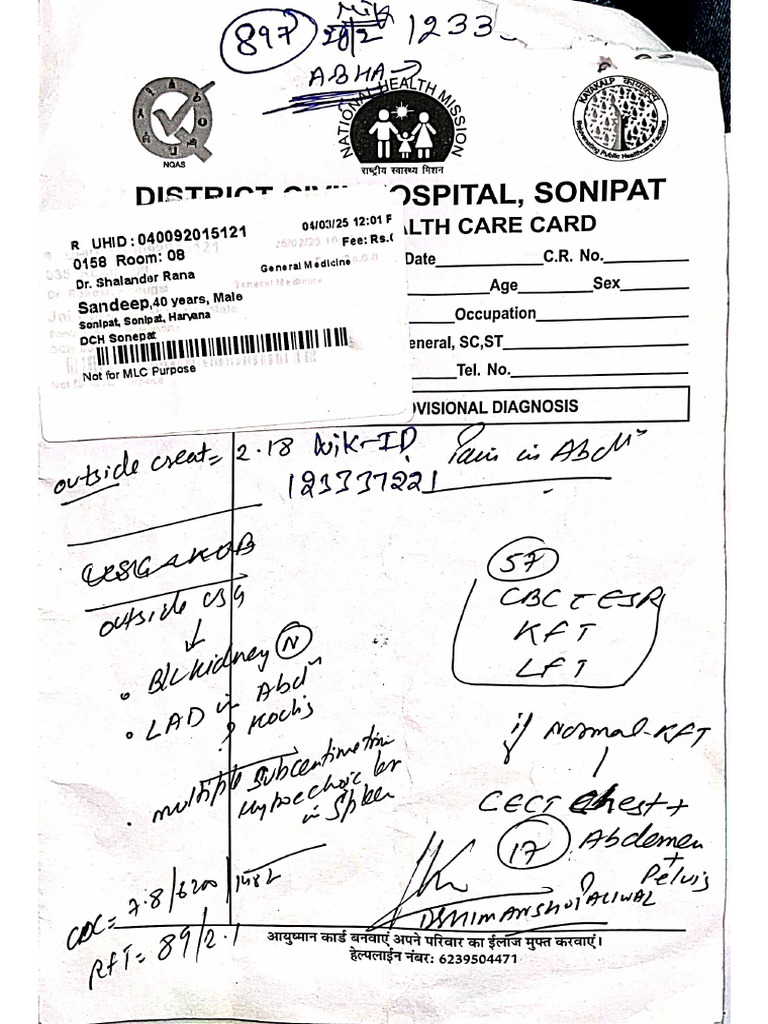 897
1233
ABHA
NQAS
NATIONAL HEALTH MISSION
राष्ट्रीय स्वास्थ्य मिशन
KAYAKALP कायाकल्प
Rejuvenating Public Healthcare Facilities
DISTRICT CIVIL HOSPITAL, SONIPAT
ALTH CARE CARD
R UHID : 040092015121 04/03/25 12:01 P
0158 Room: 08 Fee: Rs.0
Dr. Shalander Rana General Medicine
Sandeep,40 years, Male
Sonipat, Sonipat, Haryana
DCH Sonepat
Not for MLC Purpose
Date C.R. No.
Age Sex
Occupation
eneral, SC,ST
Tel. No.
OVISIONAL DIAGNOSIS
outside creat = 2.18 Nik-ID Pain in Abdm
123337221
USG
outside USG
57
CBC ESR
KFT
LFT
B/L Kidney N
LAD in Abdm
? Koch's
if Normal KFT
multiple subcentimetric
Hypoechoic
in Spleen
CECT Chest +
17 Abdomen
+
Pelvis
CBC = 7.8/6200/1.482
RFT = 89/2.1
आयुष्मान कार्ड बनवाएं अपने परिवार का ईलाज मुफ्त करवाएं।
हेल्पलाईन नंबर: 6239504471